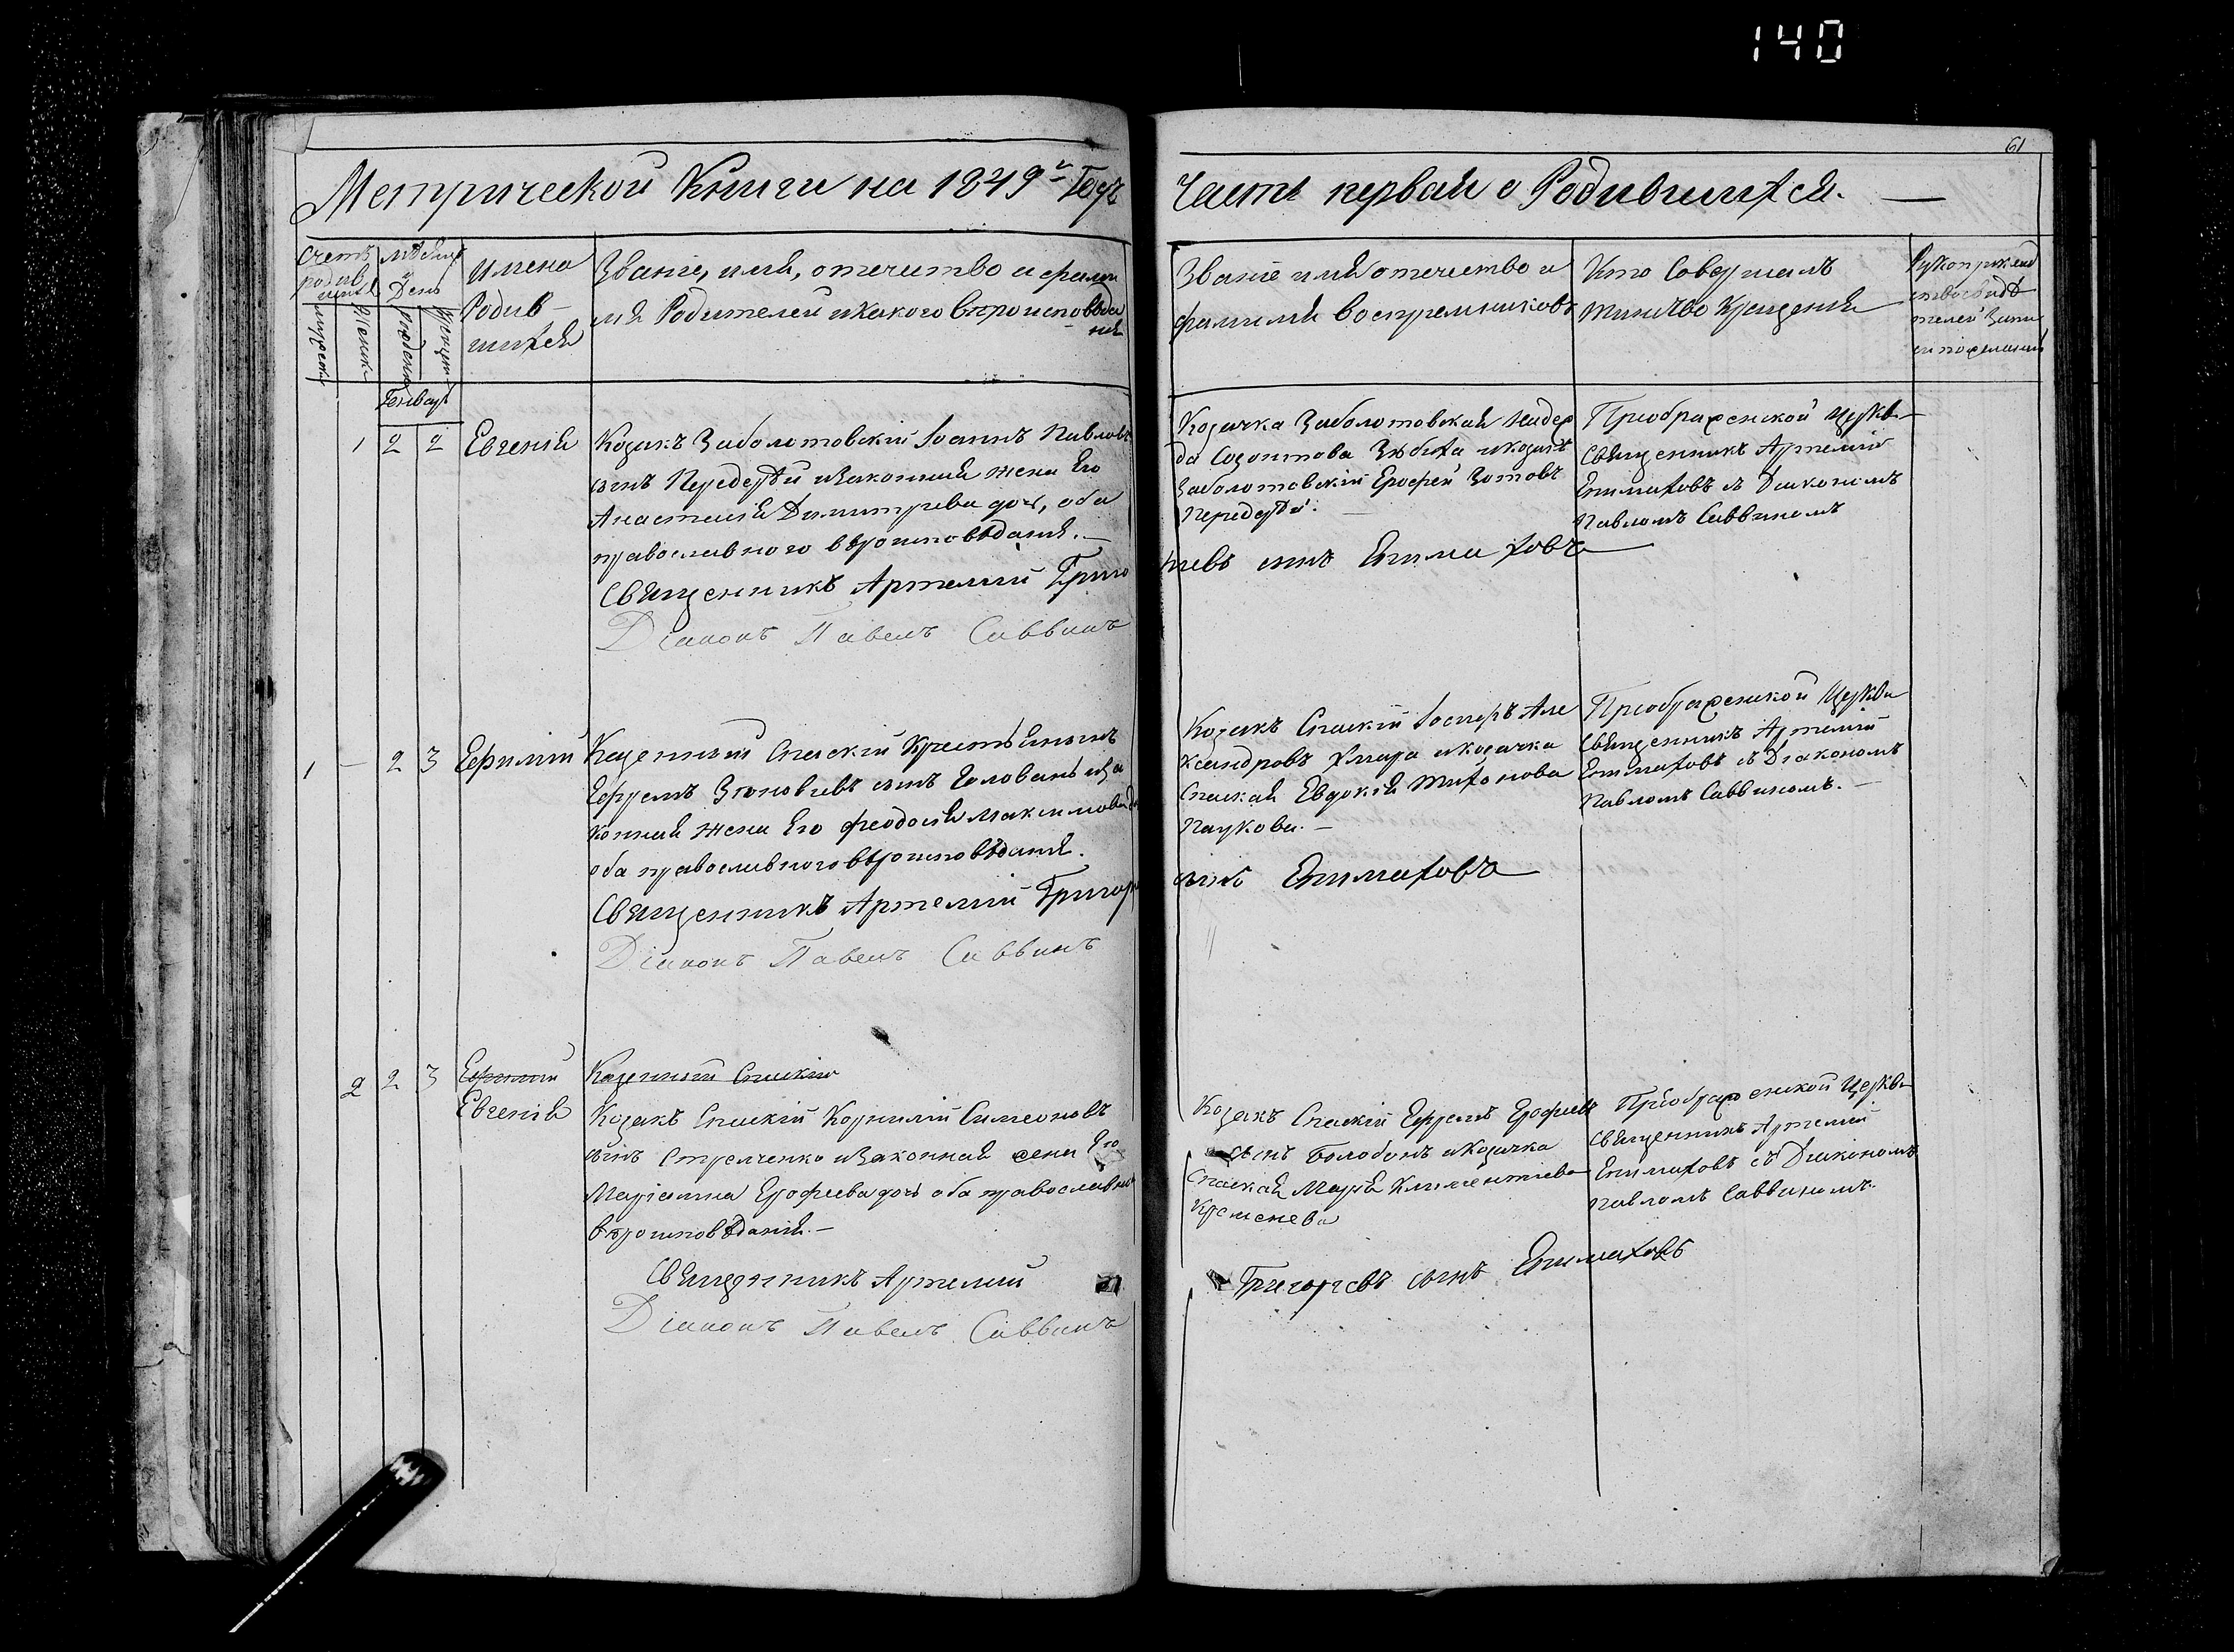 140
61
Метрической Книги на 1849й Годъ
Часть первая о Родившихся. —
Счетъ
родив
шихся
мужеска
женска
мѣсяцъ
и
День
рожденія
крещенія
Имена
Родив-
шихся
Званіе, имя, отечиство и фами
лія Родителей икакого вѣроисповѣда
нія
Званіе имя отечество и
фамилія воспреемниковъ
Кто Совершалъ
таинство Крещенія
Рукоприклад
ство свидѣ
телей Запи
си пожеланію
Генварь
1 2 2 Евгенія
Козакъ Заболотовскій Іоаннъ Павловъ
сынъ Передерѣй изаконная жена Его
Анастасія Димитріева дочь, оба
православного вѣроисповѣданія. —
Священникъ Артемій Григо
Діаконъ Павелъ Саввинъ
Козачка Заболотовская Надеж
да Созонтова икозакъ
Заболотовскій Ерофей Зотовъ
Передерѣй. —
ріевъ сынъ Епимаховъ
Приображенской Церкви
Священникъ Артемій
Епимаховъ съ Діакономъ
Павломъ Саввиномъ
1 — 2 3 Ефимій
Казенный Спаскій Крестьянинъ
Ефремъ Зіновіевъ сынъ Головань иза
конная жена Его Феодосія Максимова
оба православного вѣроисповѣданія.
Священникъ Артемій Григор
Діаконъ Павелъ Саввинъ
Козакъ Спаскій Іосифъ Але
ксандровъ Хмара икозачка
Спаская Евдокія Тихонова
Паукова. —
сынъ Епимаховъ
Приображенской Церкви
Священникъ Артемій
Епимаховъ съ Діакономъ
Павломъ Саввиномъ. —
2 2 3 Ефимій
Евгенія
Казенный Спаскій
Козакъ Спаскій Корнилій Симеоновъ
сынъ Стрелченко изаконная жена Его
Маріамна Ерофиева дочь оба православного
вѣроисповѣданія. —
Священникъ Артемій
Діаконъ Павелъ Саввинъ
Козакъ Спаскій Ефремъ Ерофиевъ
сынъ Болобонъ икозачка
Спаская Марія Климентиева
Кременева
Григоріевъ сынъ Епимаховъ
Приображенской Церкви
Священникъ Артемій
Епимаховъ съ Діакономъ
Павломъ Саввиномъ.